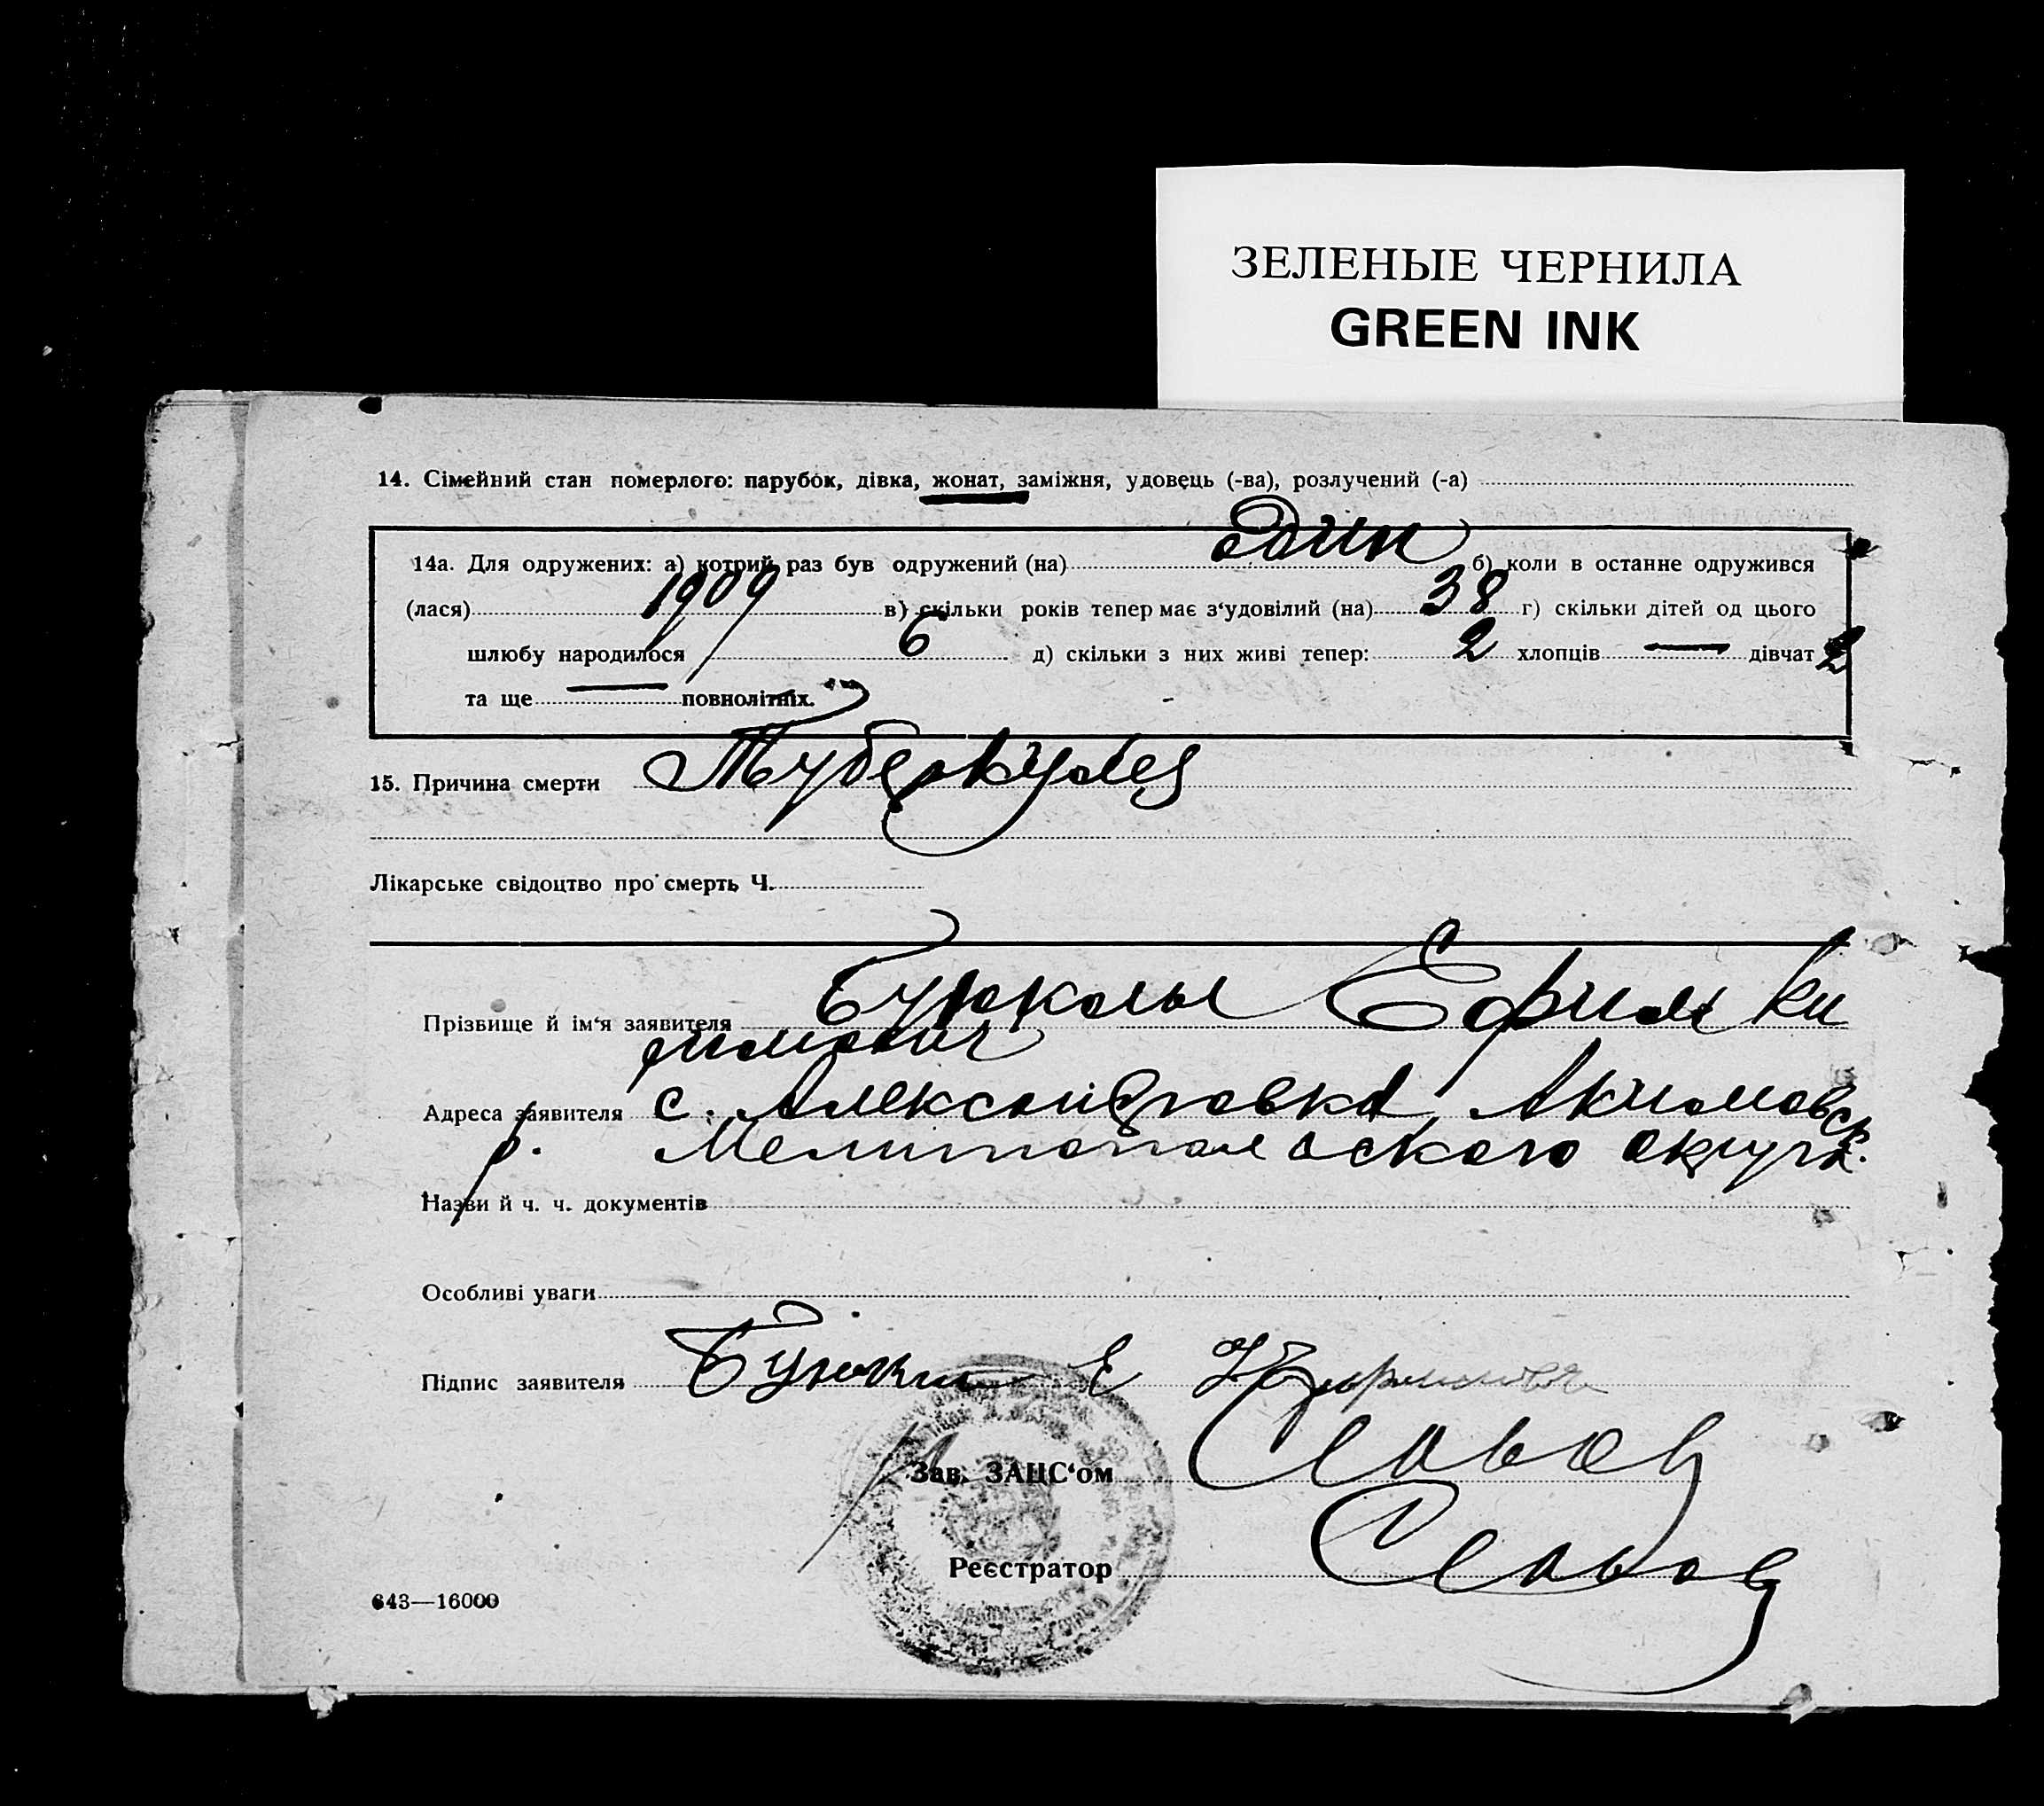 ЗЕЛЕНЫЕ ЧЕРНИЛА
GREEN INK
14. Сімейний стан померлого: парубок, дівка, жонат, заміжня, удовець (-ва), розлучений (-а)
14а. Для одружених: а) котрий раз був одружений (на) один б) коли в останне одружився
(лася) 1909 в) скільки років тепер має з'удовілий (на) 38 г) скільки дітей од цього
шлюбу народилося 6 д) скільки з них живі тепер: 2 хлопців — дівчат 2
та ще — повнолітніх.
15. Причина смерти Туберкулез
Лікарське свідоцтво про смерть Ч.
Прізвище й ім'я заявителя Ефим
Адреса заявителя с. Александровка Акимовск
р. Мелитопольского округа.
Назви й ч. ч. документів
Особливі уваги
Підпис заявителя Е
Зав. ЗАЦС'ом
Реєстратор
643—16000